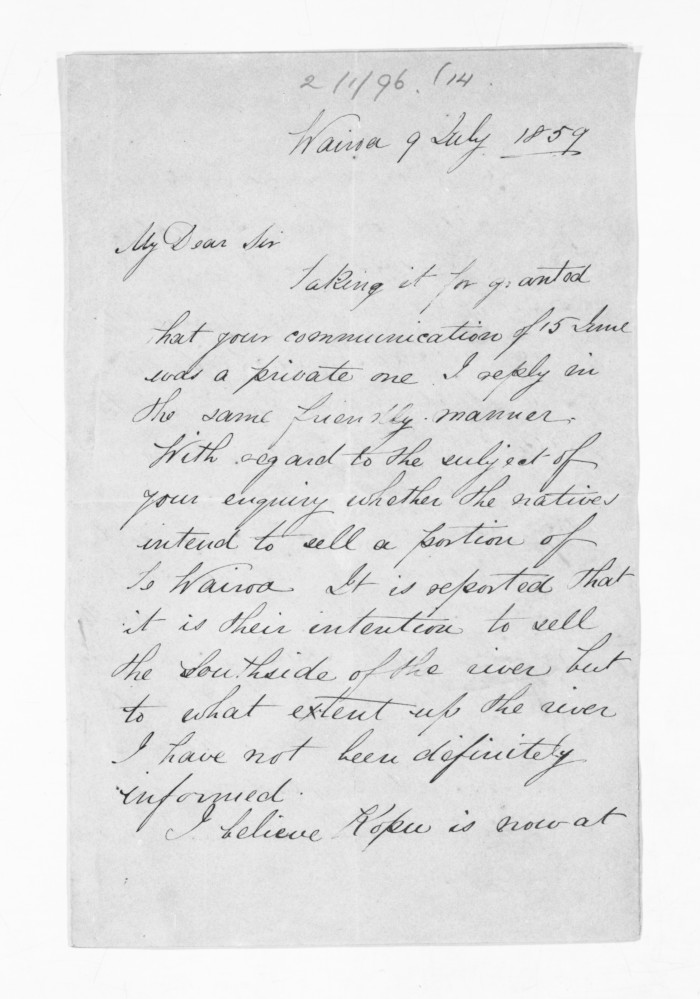 2/1/96. (14.
Wairoa 9 July 1859
My Dear Sir
Taking it for granted
that your communication of 15 June
was a private one I reply in
the same friendly manner.
With regard to the subject of
your enquiry whether the natives
intend to sell a portion of
Te Wairoa It is reported that
it is their intention to sell
the Southside of the river but
to what extent up the river
I have not been definitely
informed.
I believe Kopu is now at